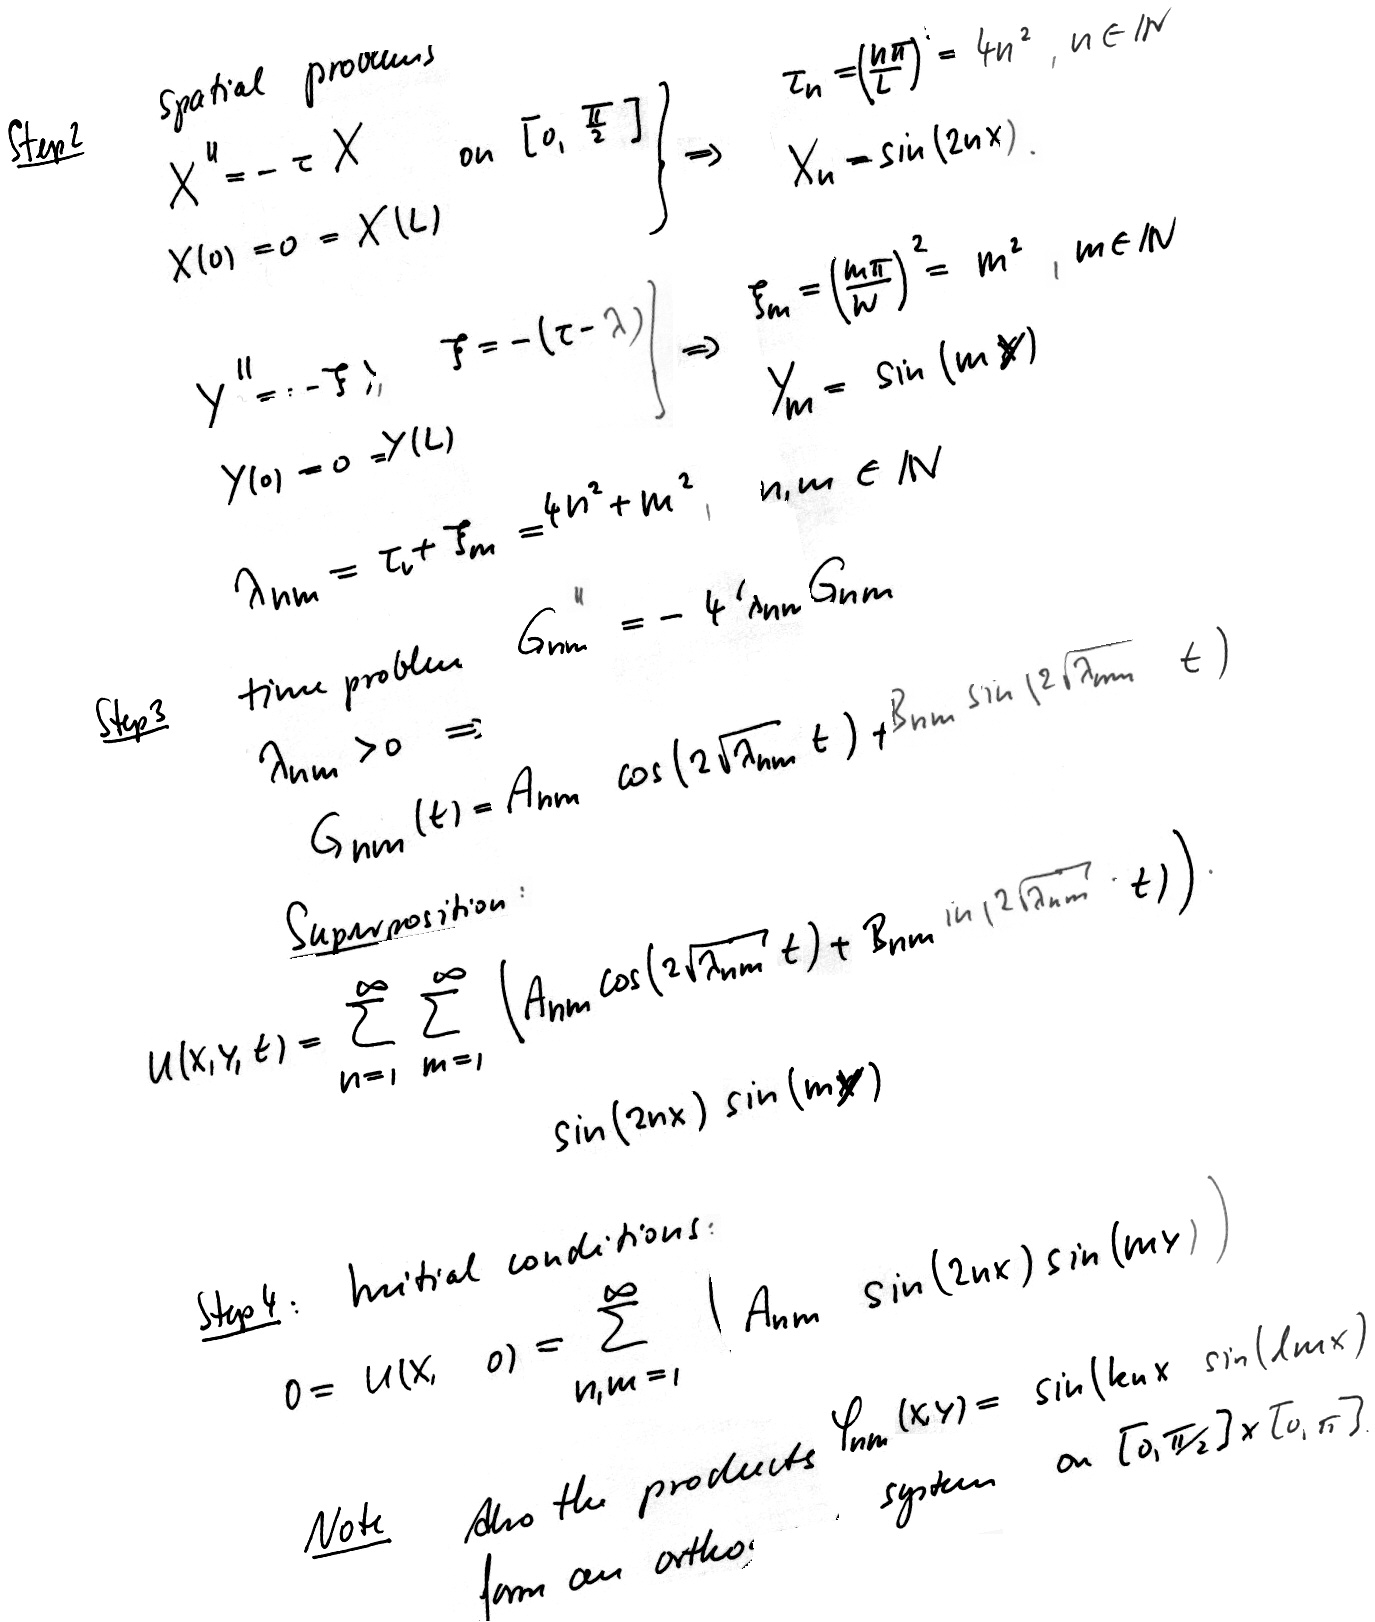 Step 2 spatial problems
X'' = - τ X on [0, π/2] } ⇒ τn = (nπ/L)² = 4n², n ∈ ℕ
X(0) = 0 = X(L) Xn = sin(2nx).
Y'' = - ξ Y, ξ = -(τ - λ) } ⇒ ξm = (mπ/W)² = m², m ∈ ℕ
Y(0) = 0 = Y(L) Ym = sin(my)
λnm = τn + ξm = 4n² + m², n,m ∈ ℕ
Step 3 time problem Gnm'' = - 4 λnm Gnm
λnm > 0 ⇒
Gnm(t) = Anm cos(2√λnm t) + Bnm sin(2√λnm t)
Superposition:
u(x,y,t) = ∑n=1^∞ ∑m=1^∞ (Anm cos(2√λnm t) + Bnm in(2√λnm · t)).
sin(2nx) sin(my)
Step 4: Initial conditions:
0 = u(x, 0) = ∑n,m=1^∞ (Anm sin(2nx) sin(my))
Note Also the products φnm(x,y) = sin(knx sin(lmx)
form an ortho system on [0,π/2] x [0,π].